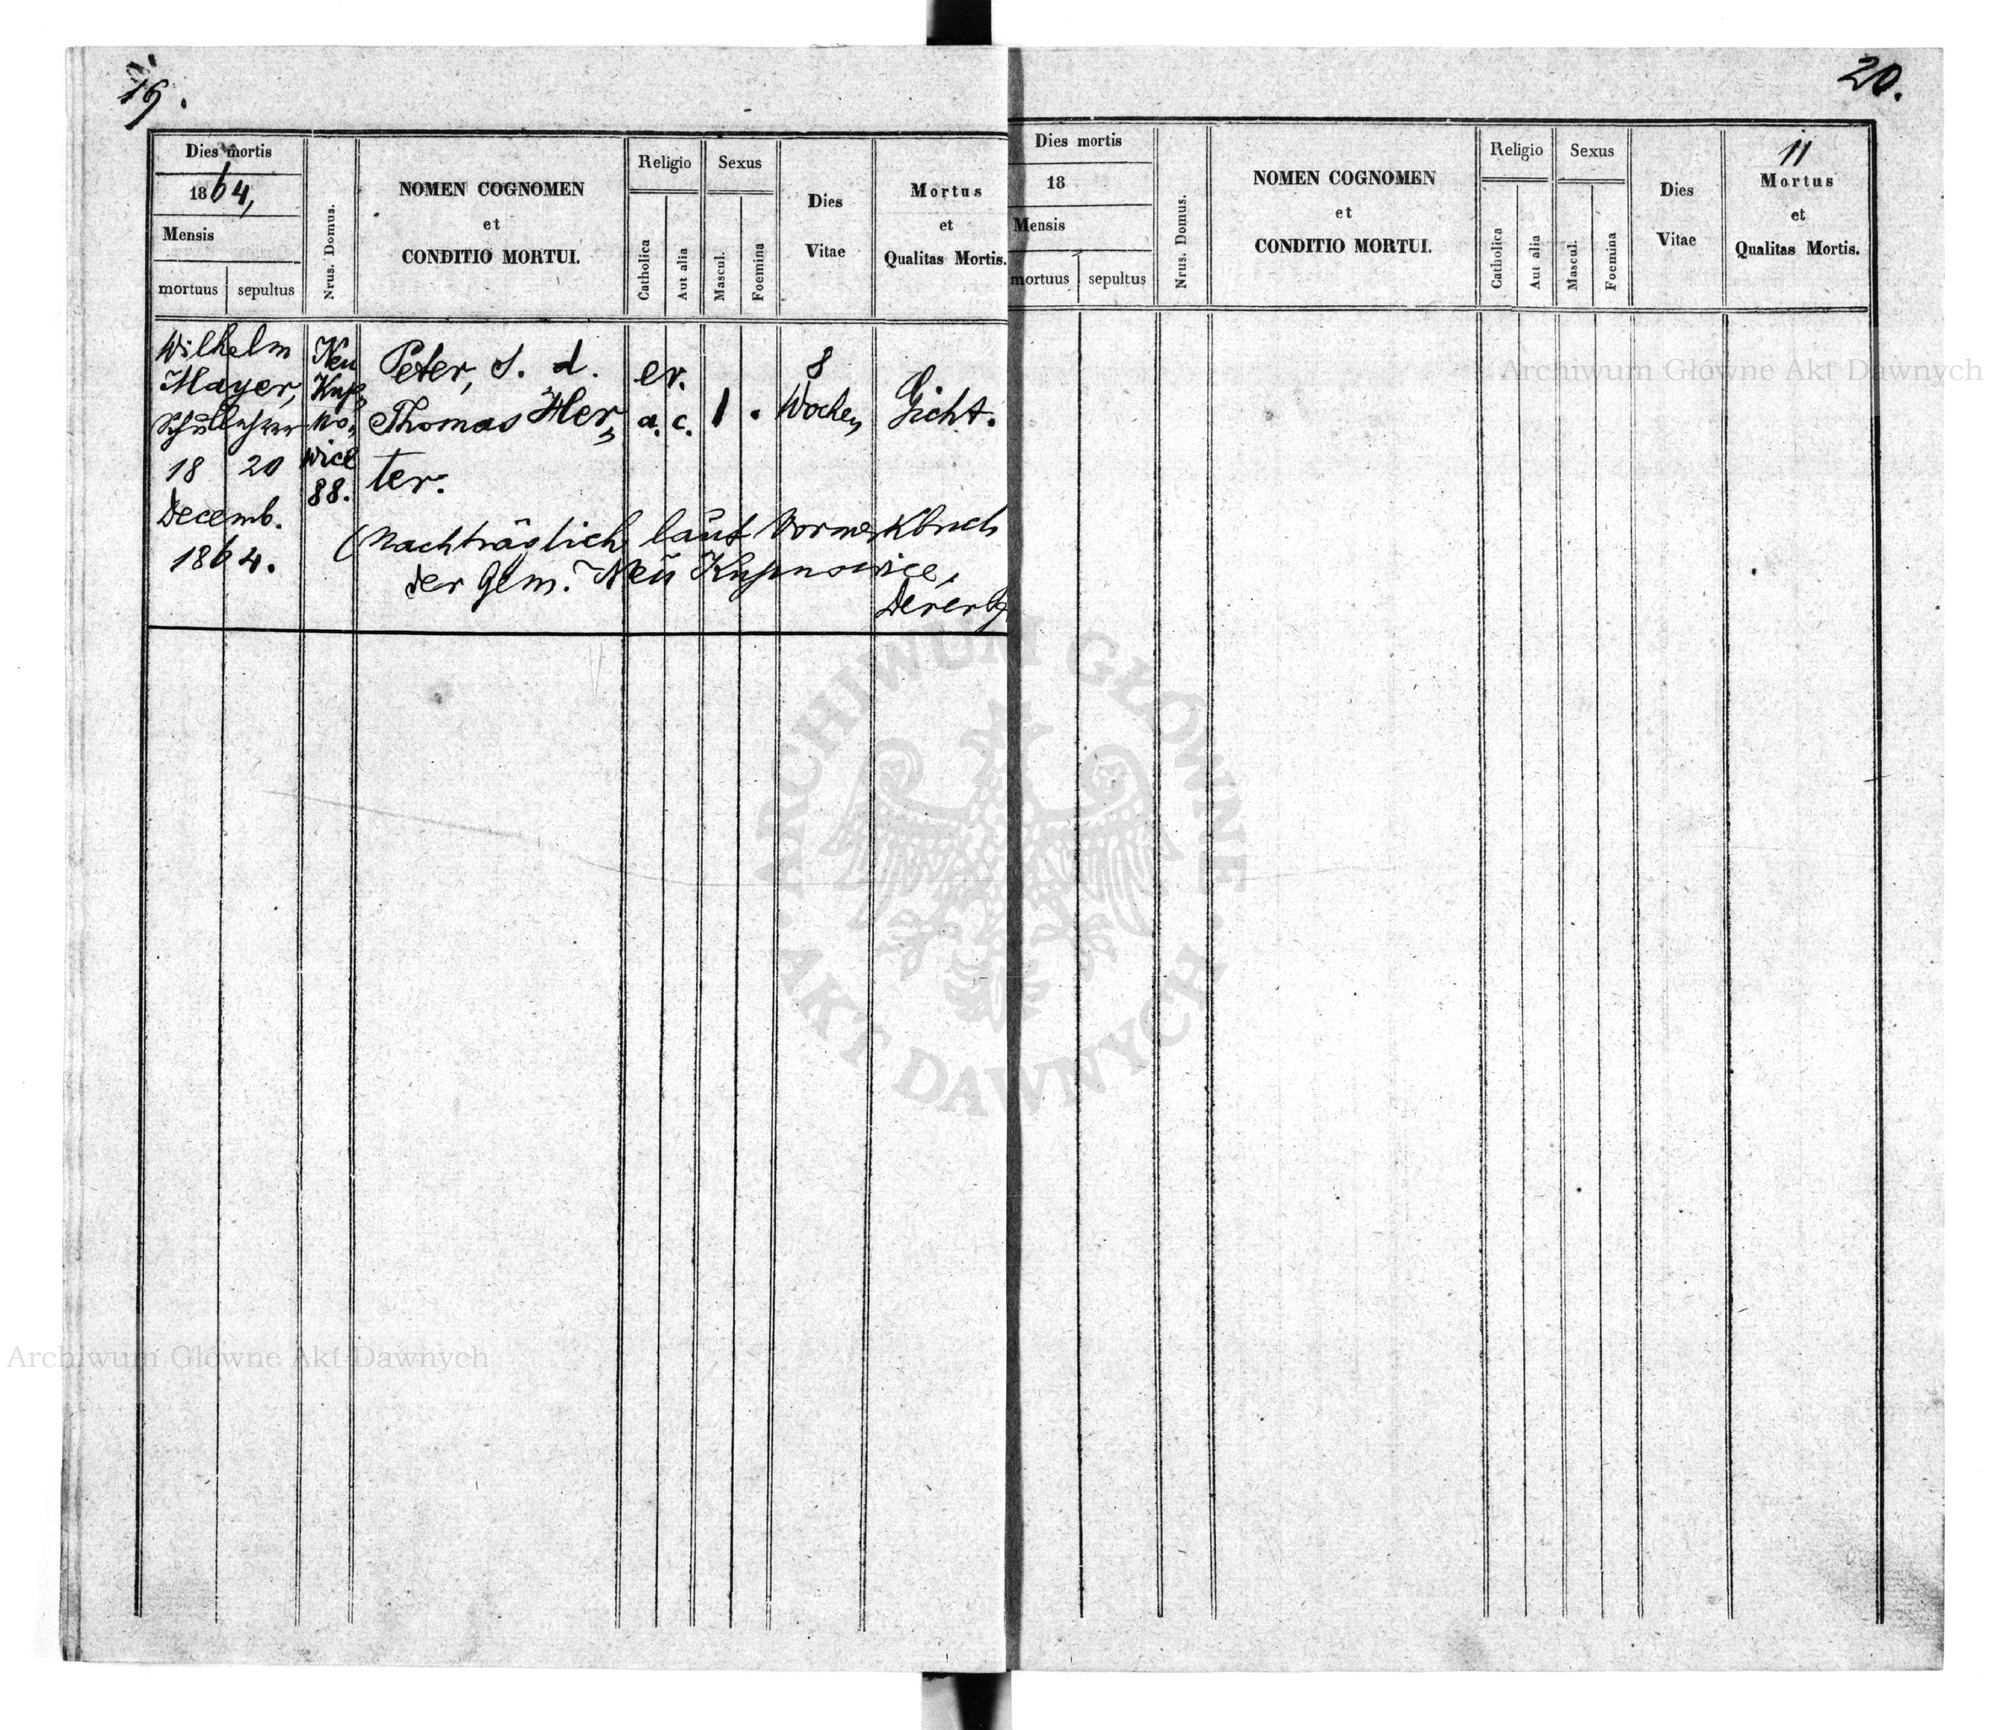 19.
Dies mortis
1864,
Mensis
mortuus sepultus
Nrus. Domus.
NOMEN COGNOMEN
et
CONDITIO MORTUI.
Religio
Catholica
Aut alia
Sexus
Mascul.
Foemina
Dies
Vitae
Mortus
et
Qualitas Mortis.
Wilhelm
Mayer,
Schullehrer
18 20
Decemb.
1864.
Neu
Kup
no
wice
88.
Peter, S. d.
Thomas Her
ter.
ev.
a. c.
1 .
8
Wochen
Gicht.
(Nachträglich laut Vormerkbuch
der Gem. Neu Kupnowice,
20.
Dies mortis
18
Mensis
mortuus sepultus
Nrus. Domus.
NOMEN COGNOMEN
et
CONDITIO MORTUI.
Religio
Catholica
Aut alia
Sexus
Mascul.
Foemina
Dies
Vitae
11
Mortus
et
Qualitas Mortis.
Archiwum Główne Akt Dawnych
ARCHIWUM GŁÓWNE
AKT DAWNYCH
Archiwum Główne Akt Dawnych